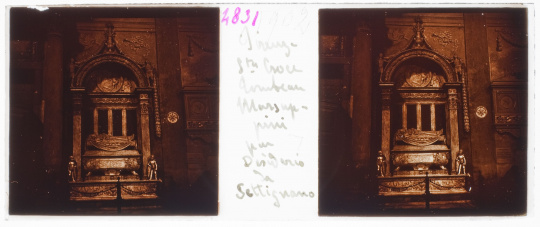 4831
Firenze
Sta Croce
Tombeau
Marsup-
pini
par
Desiderio
da
Settignano